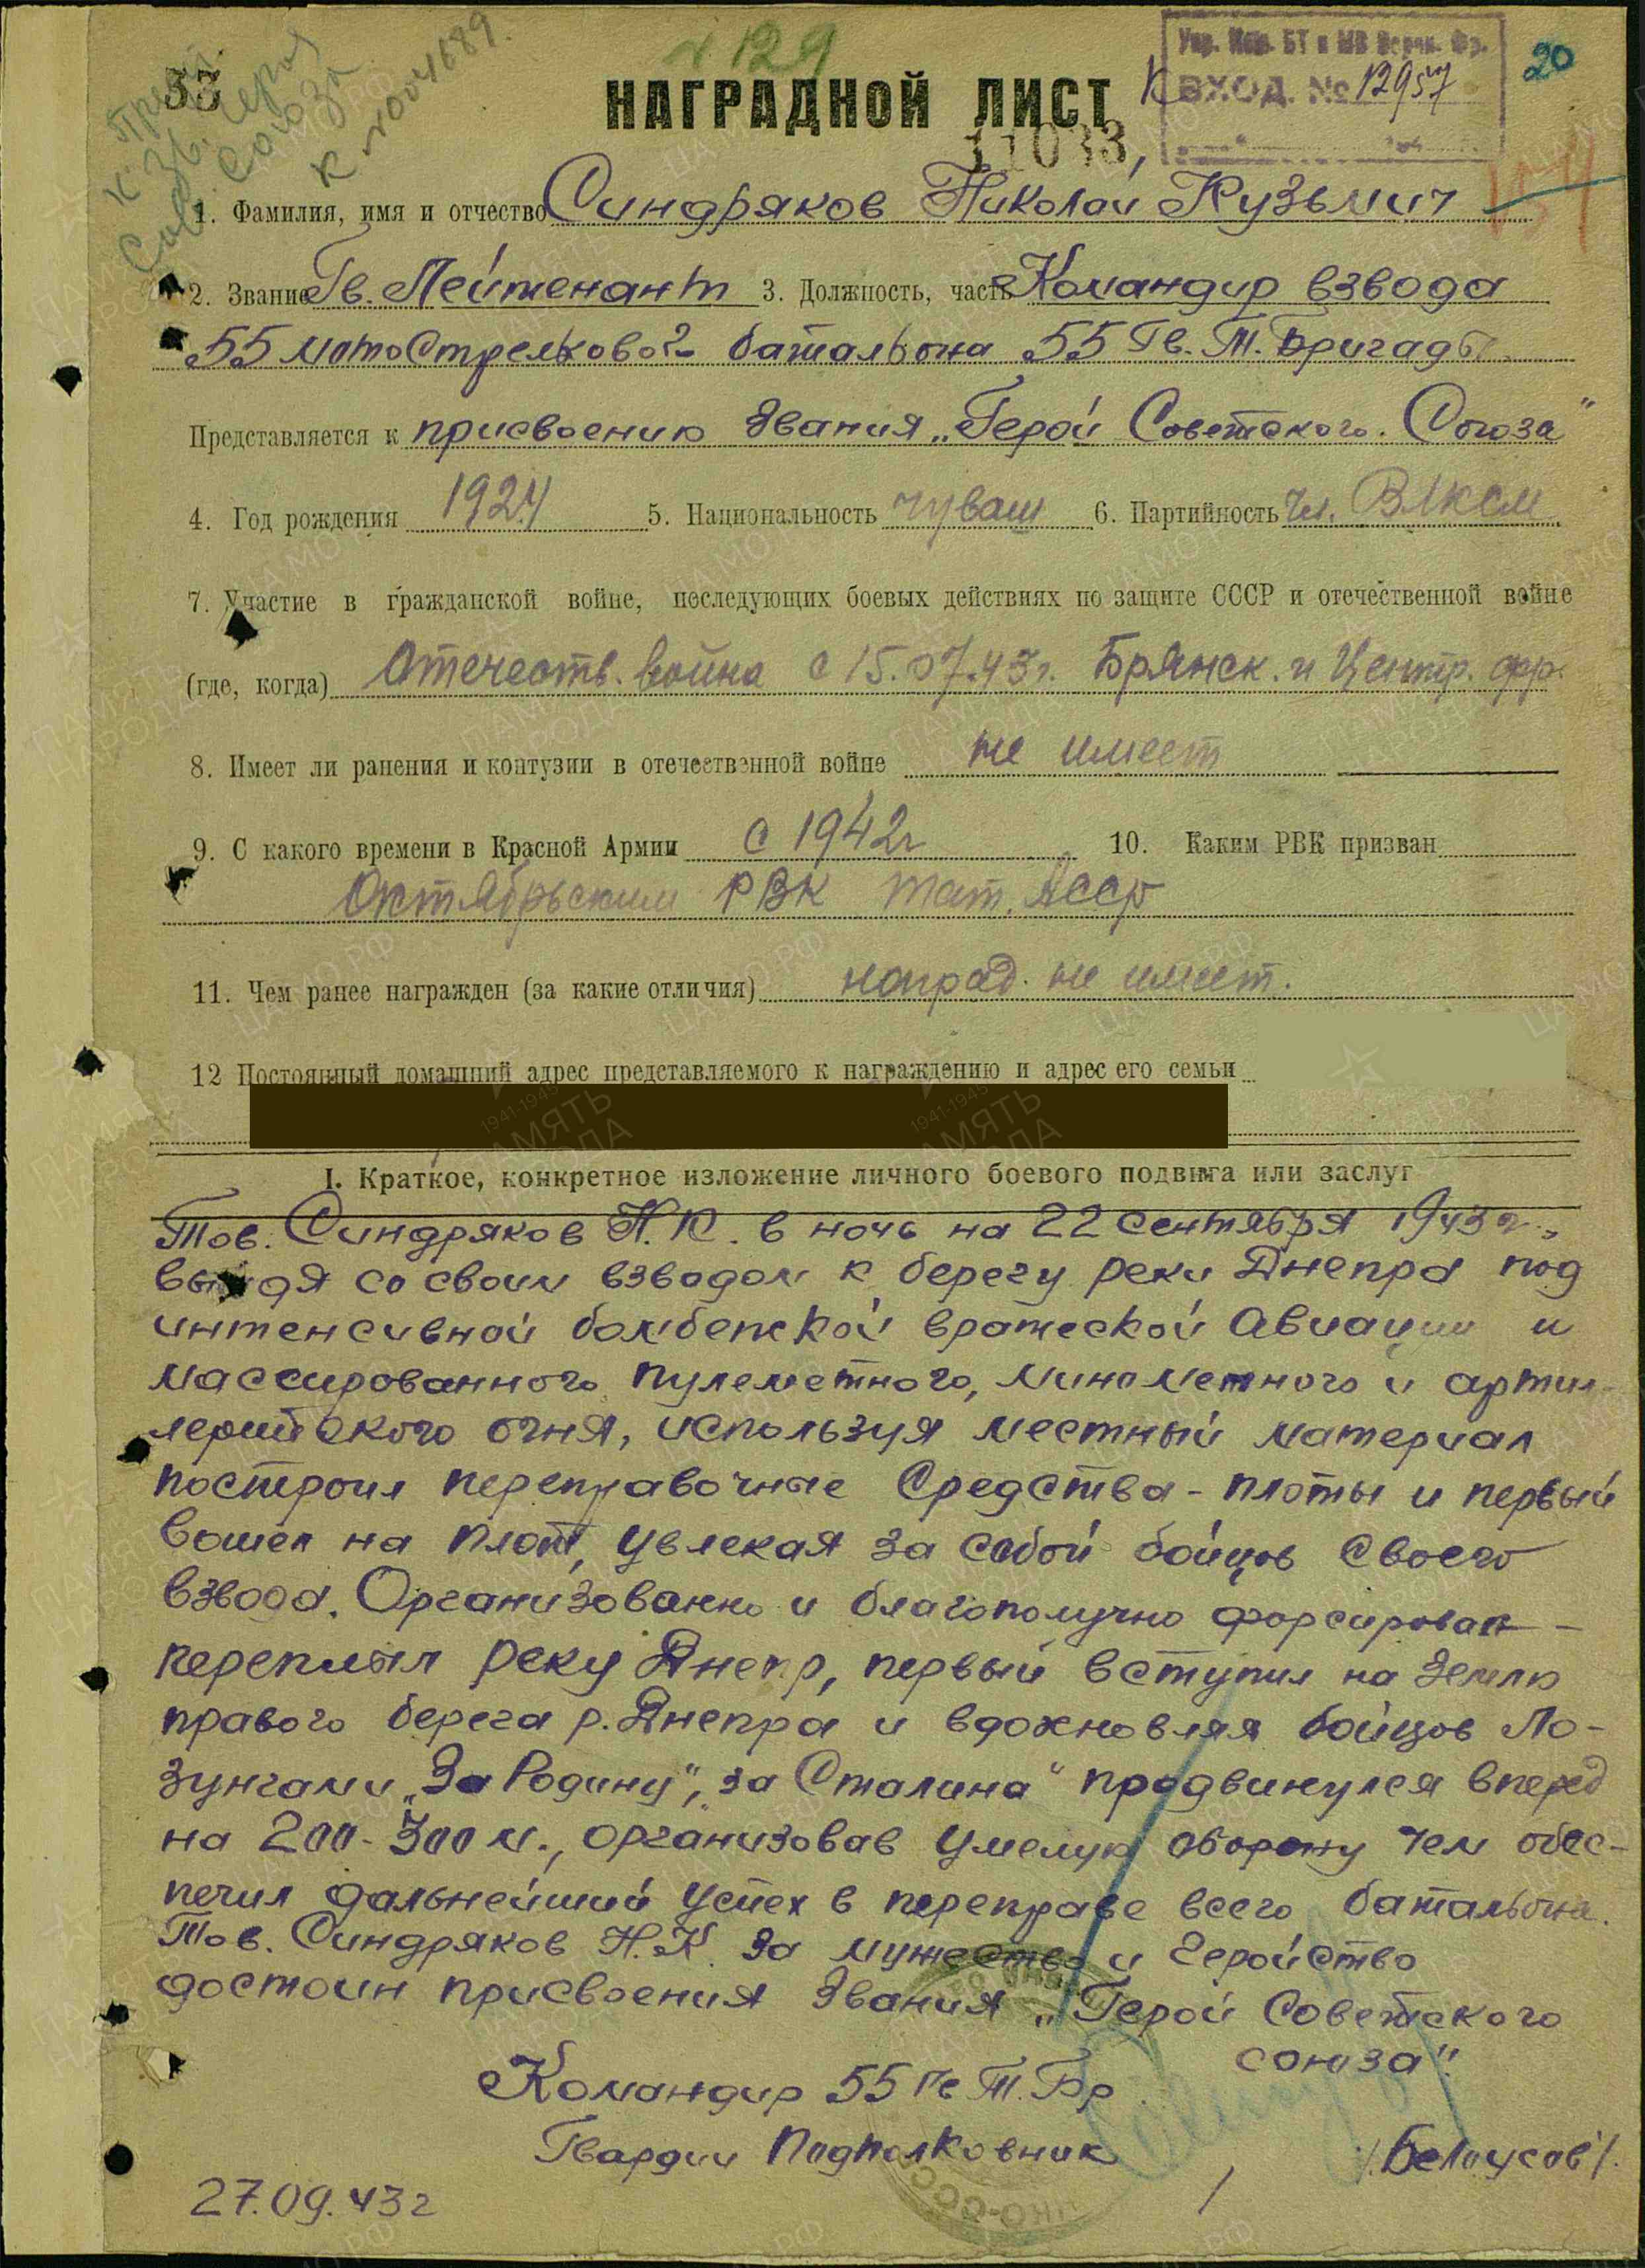 53
н. 129
Упр. Ком. БТ и МВ
20
НАГРАДНОЙ ЛИСТ
К ВХОД. № 12957
11033
к
зв. Героя
Сов. Союза
К
1. Фамилия, имя и отчество Синдряков Николай Кузьмич
2. Звание Гв. Лейтенант 3. Должность, часть Командир взвода
55 мотострелкового батальона 55 Гв. Т. Бригады
Представляется к присвоению звания „Герой Советского Союза"
4. Год рождения 1924 5. Национальность чуваш 6. Партийность чл. ВЛКСМ
7. Участие в гражданской войне, последующих боевых действиях по защите СССР и отечественной войне
(где, когда) Отечеств. война с 15.07.43г. Брянск. и Центр. фр.
8. Имеет ли ранения и контузии в отечественной войне не имеет
9. С какого времени в Красной Армии с 1942г 10. Каким РВК призван
Октябрьским РВК Тат. АССР
11. Чем ранее награжден (за какие отличия) наград не имеет.
12 Постоянный домашний адрес представляемого к награждению и адрес его семьи
I. Краткое, конкретное изложение личного боевого подвига или заслуг
Тов. Синдряков Н.К. в ночь на 22 сентября 1943г.,
выйдя со своим взводом к берегу реки Днепра под
интенсивной бомбежкой вражеской авиации и
массированного пулеметного, минометного и артил-
лерийского огня, используя местный материал
построил переправочные средства - плоты и первый
вошел на плот, увлекая за собой бойцов своего
взвода. Организованно и благополучно форсировал -
переплыл реку Днепр, первый вступил на землю
правого берега р. Днепра и вдохновляя бойцов ло-
зунгами „За Родину", „за Сталина" продвинулся вперед
на 200-300 м., организовав умелую оборону чем обес-
печил дальнейший успех в переправе всего батальона.
Тов. Синдряков Н.К. за мужество и геройство
достоин присвоения звания „Герой Советского
Союза".
Командир 55 Гв Т. Бр
Гвардии Подполковник /Белоусов/.
27.09.43г